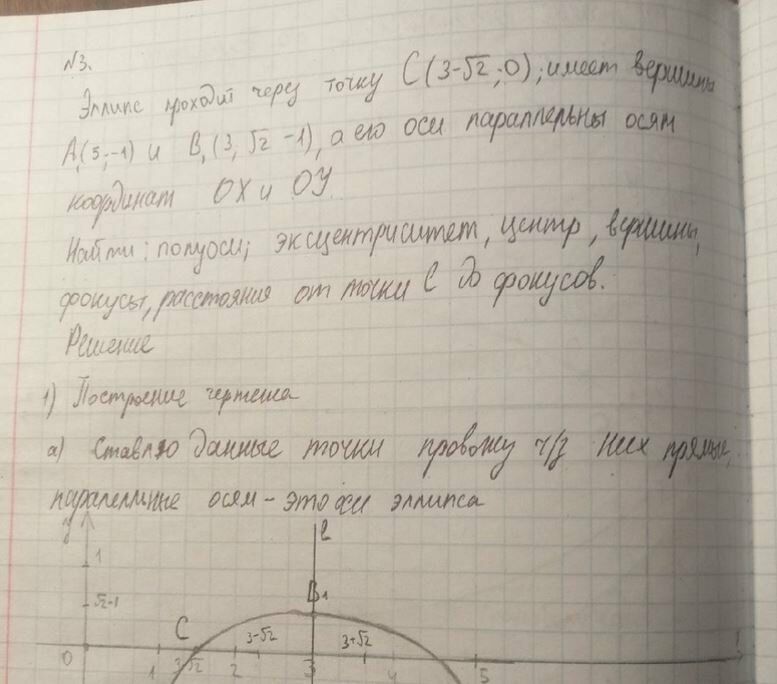 №3.
Эллипс проходит через точку C(3-√2;0); имеет вершины
A₁(5;-1) и B₁(3,√2-1), а его оси параллельны осям
координат OX и OY
Найти: полуоси; эксцентриситет, центр, вершины,
фокусы, расстояния от точки C до фокусов.
Решение
1) Построение чертежа
а) Ставлю данные точки провожу ч/з них прямые,
параллельные осям - это оси эллипса
y
1
√2-1
C
B₁
3-√2
3+√2
0
1
3-√2
2
3
4
5